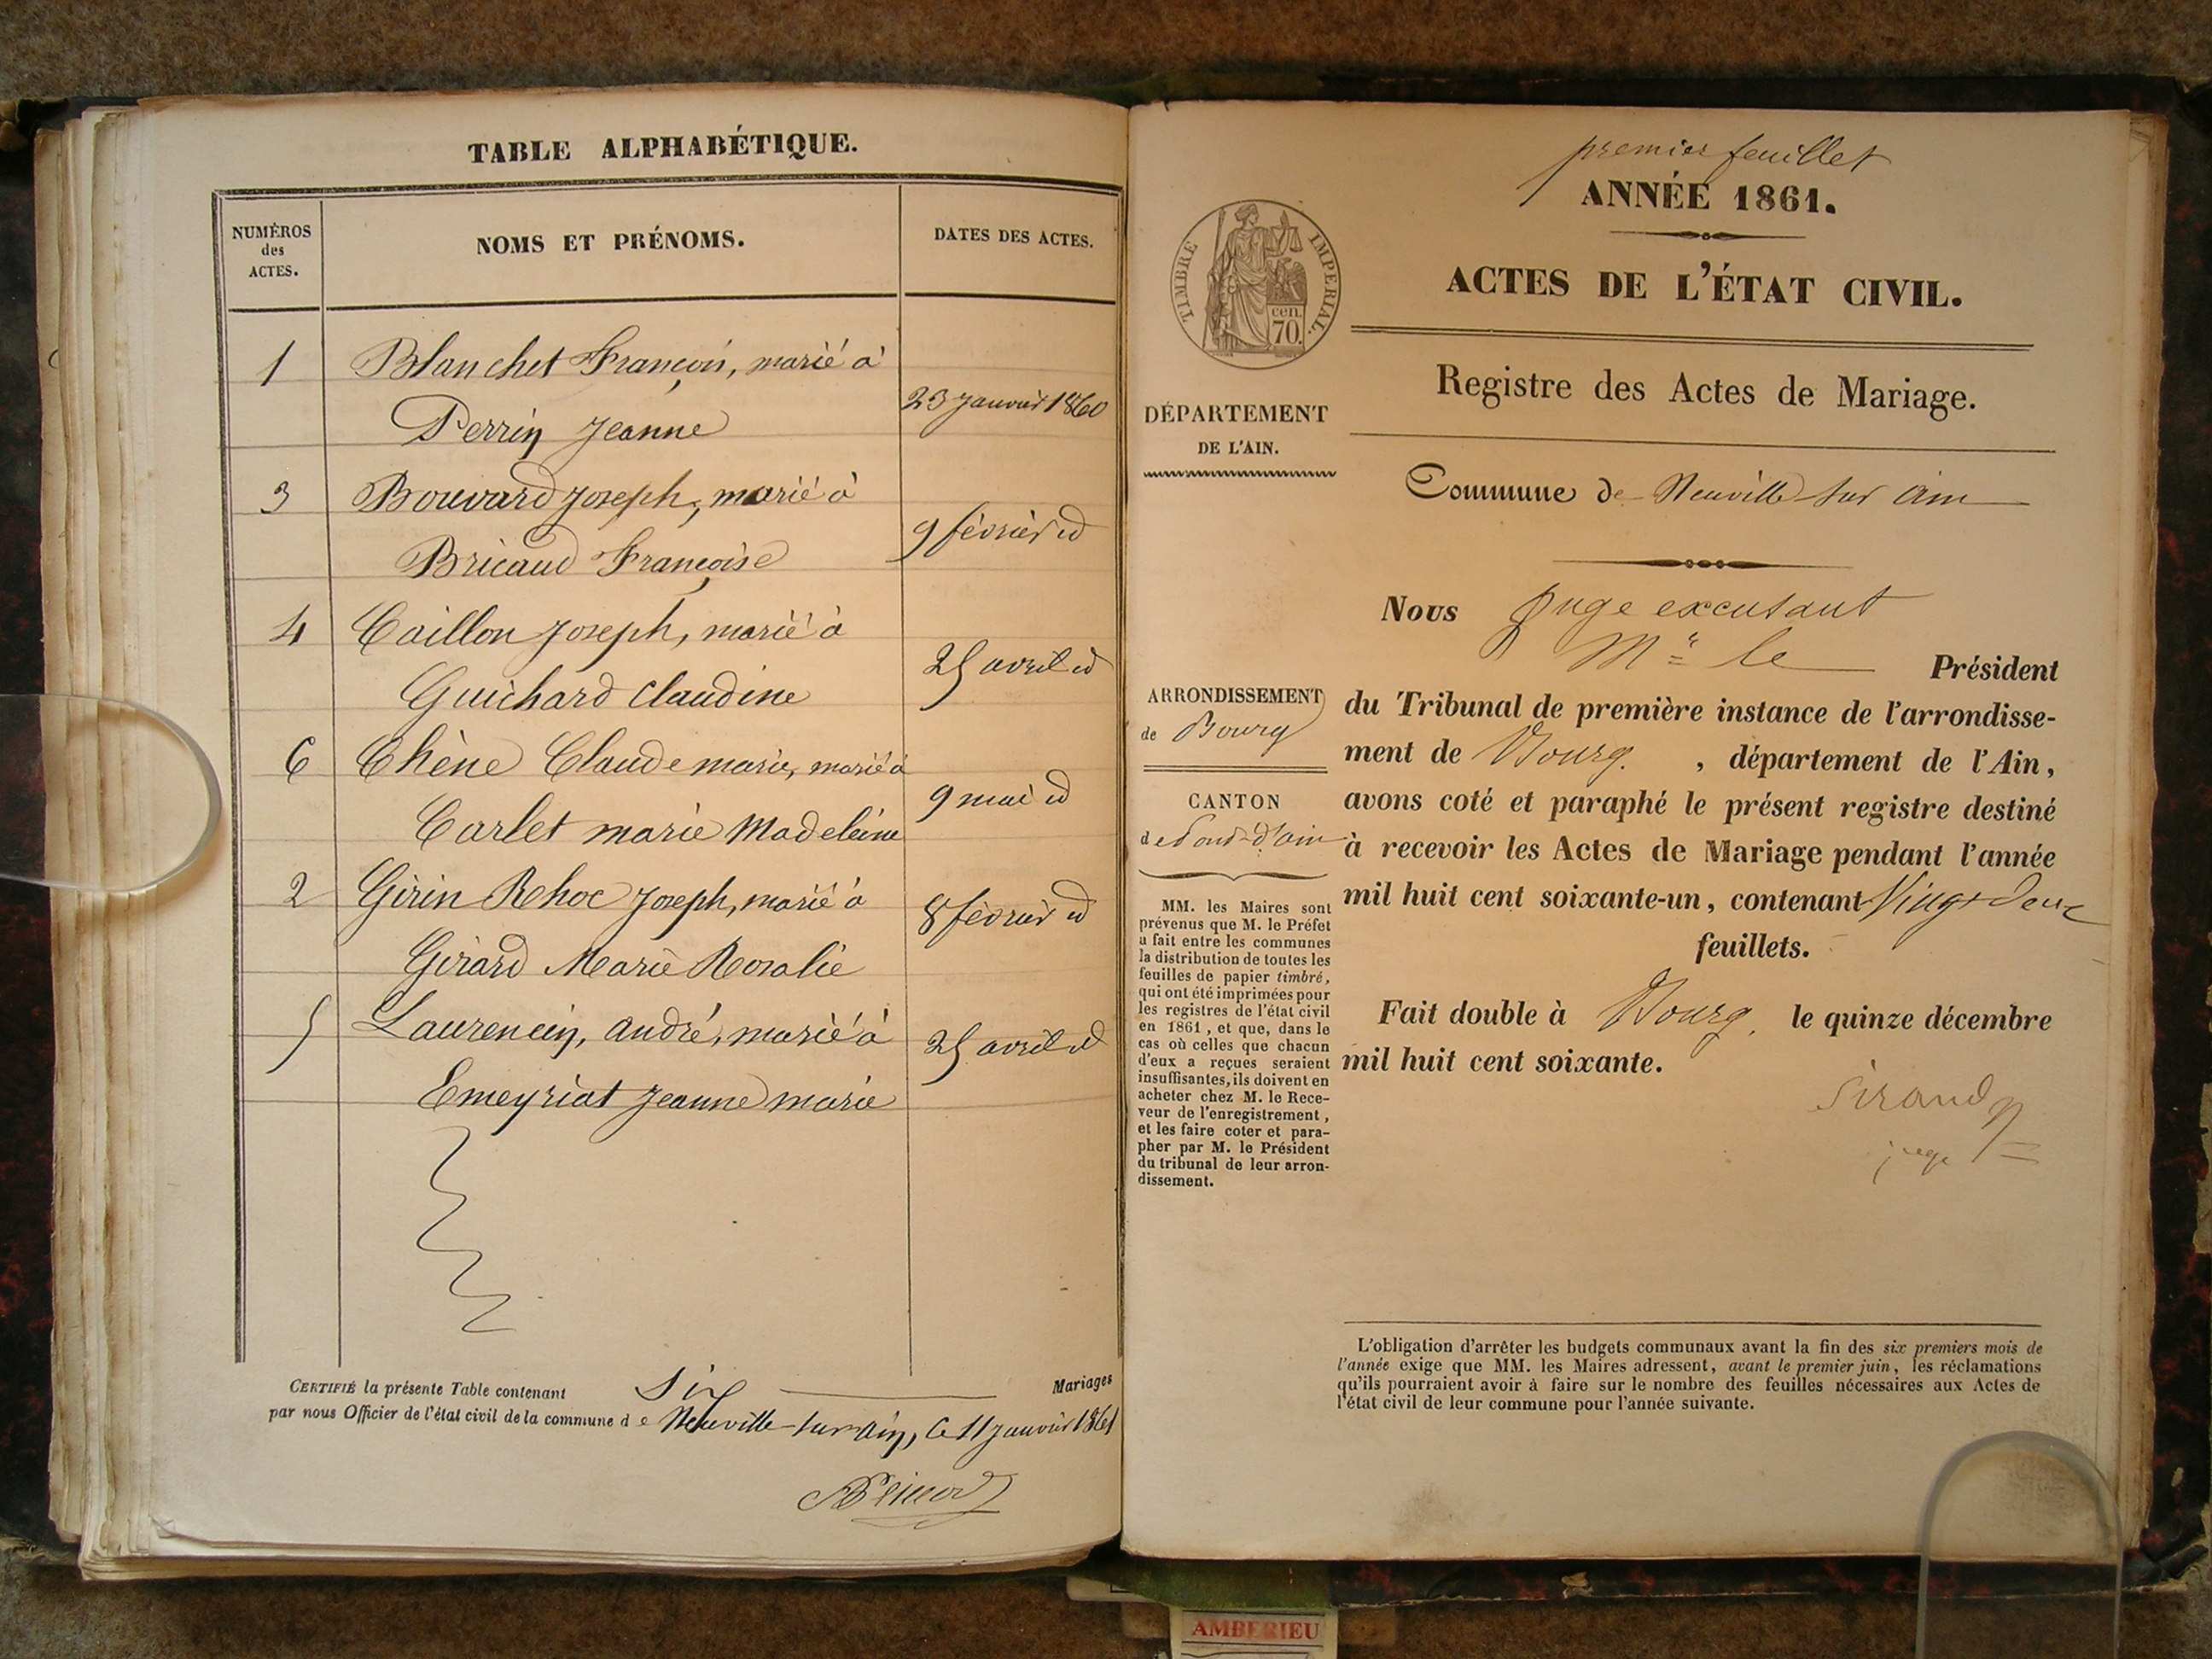 TABLE ALPHABÉTIQUE.
NUMÉROS
des
ACTES.
NOMS ET PRÉNOMS.
DATES DES ACTES.
1
Blanchet François, marié à
Perrin Jeanne
23 Janvier 1860
3
Bouvard Joseph, marié à
Bricaud Françoise
9 février id
4
Caillon Joseph, marié à
Guichard Claudine
25 avril id
6
Chêne Claude marie, marié à
Carlet marie Madeleine
9 mai id
2
Girin Rehoc Joseph, marié à
Girard Marie Rosalie
8 février id
5
Laurencin, andré, marié à
Emeyriat Jeanne marie
25 avril id
CERTIFIÉ la présente Table contenant Six Mariages
par nous Officier de l'état civil de la commune de Neuville-sur-ain, ce 11 Janvier 1861
premier feuillet
ANNÉE 1861.
ACTES DE L'ÉTAT CIVIL.
TIMBRE IMPÉRIAL.
cen.
70.
Registre des Actes de Mariage.
DÉPARTEMENT
DE L'AIN.
Commune de Neuville sur ain
Nous Juge excusant
Mr le Président
ARRONDISSEMENT
de Bourg
CANTON
de Pont-d'ain
du Tribunal de première instance de l'arrondisse-
ment de Bourg. , département de l'Ain,
avons coté et paraphé le présent registre destiné
à recevoir les Actes de Mariage pendant l'année
mil huit cent soixante-un, contenant Vingt deux
feuillets.
Fait double à Bourg, le quinze décembre
mil huit cent soixante.
Sirand
juge
MM. les Maires sont
prévenus que M. le Préfet
a fait entre les communes
la distribution de toutes les
feuilles de papier timbré,
qui ont été imprimées pour
les registres de l'état civil
en 1861, et que, dans le
cas où celles que chacun
d'eux a reçues seraient
insuffisantes, ils doivent en
acheter chez M. le Rece-
veur de l'enregistrement,
et les faire coter et para-
pher par M. le Président
du tribunal de leur arron-
dissement.
L'obligation d'arrêter les budgets communaux avant la fin des six premiers mois de
l'année exige que MM. les Maires adressent, avant le premier juin, les réclamations
qu'ils pourraient avoir à faire sur le nombre des feuilles nécessaires aux Actes de
l'état civil de leur commune pour l'année suivante.
AMBERIEU